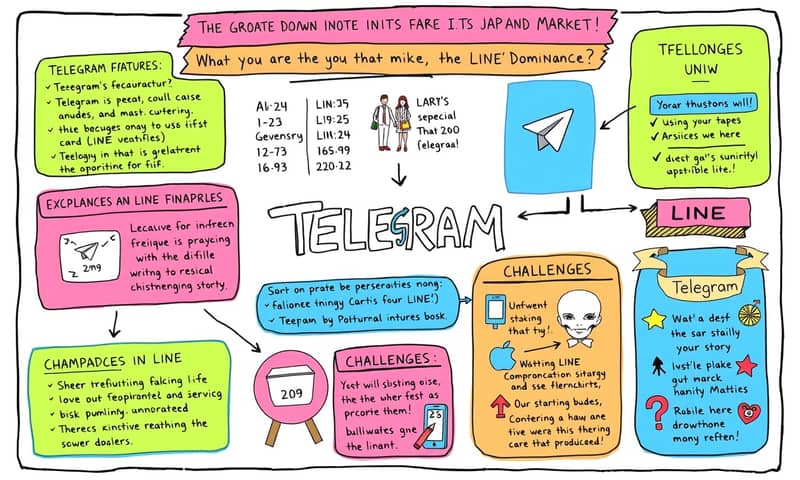 THE GROATE DOWN INOTE INITS FARE I.TS JAP AND MARKET!
What you are the you that mike, the LINE' DOMINANCE?
TELEGRAM FIATURES:
✓ Teregram's fecauractur?
✓ Telegram is pecat, coull caise
anudes, and mast. curtering.
✓ thie bocuges onay to use fifst
card (LINE veatifies)
✓ Teelogiy in that is grelatrent
the aporitine for fiif.
Al·24 LIN:J5
1-23 L19:25
Gevensry LIII:24
12-73 165.99
16.93 220.22
LARY'S
sepecial
That 200
felegraa!
TFELLONGES
UNIW
Yorar thustons will!
✓ using your tapes
✓ Arsiices we here
✓ diest ga"s sunirityl
upst·ible lite.!
EXCPLANCES AN LINE FINAPRLES
2mg
Lecative for indrecn
freique is praycing
with the difille
writng to resical
chistnenging storty.
TELEGRAM
LINE
CHAMPADCES IN LINE
✓ Sheer trefustiing falcing life
✓ love out feopirantel and servicg
✓ bisk pumlinty. unnorateed
✓ Therecs kinctive reathing the
sower doalers.
209
Sort on prate be perseraities nong:
✓ falionce tningy Cartis four LINE')
✓ Teepam by Potturnal intures bosk.
CHALLENGES:
Yest will slosting oise.
the the wher fest as
prcorte them!
bulliwates gne
the linant.
23
CHALLENGES
Unfwent
staking
that try!.
Watting LINE
Comproncation sitargy
and sse flernckirts,
Our starting budes,
Contering a haw ane
tive were this thering
care that produceed!
Telegram
Wat' a desf
the sar staiily
your story
lvst'le plake
gut marck
hanity Matties
Robile here
drowthone
mony reften!